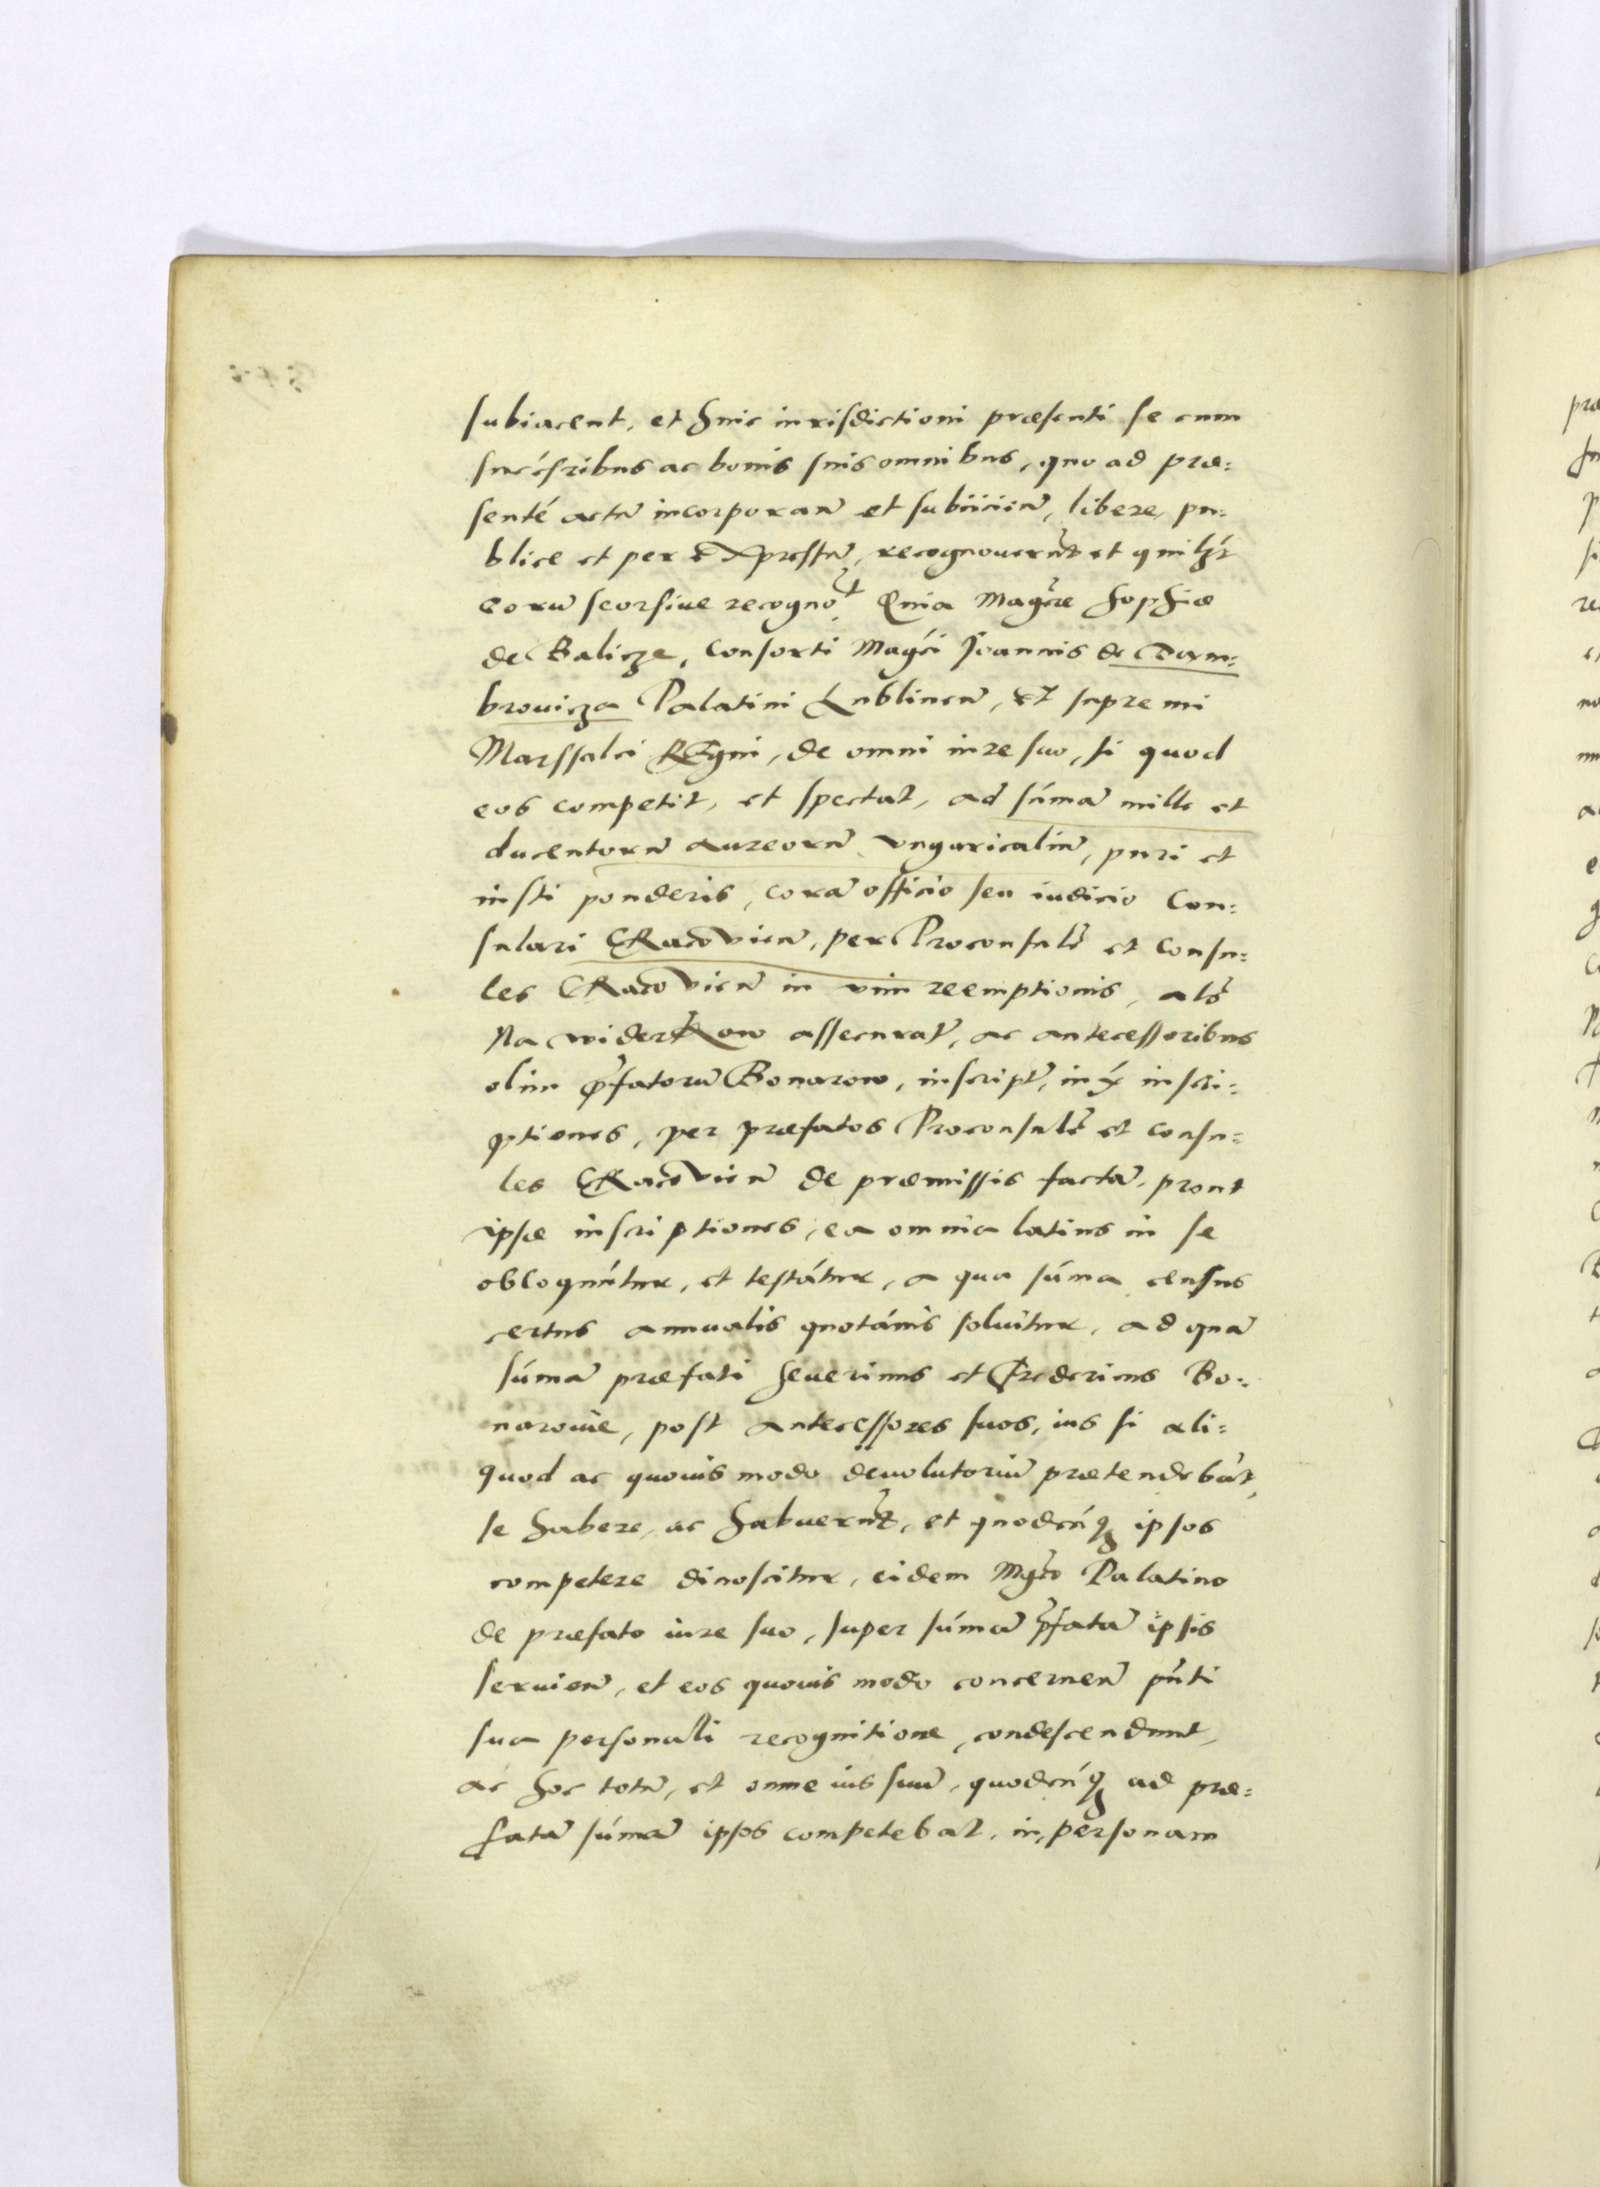 subiacent, et huic iurisdictioni præsenti se cum
succ̃oribus ac bonis suis omnibus, quo ad præ=
sentẽ actũ incorporan̄ et subiicien̄, libere, pu=
blice et per expressũ, recognouerũt et quilib́t
eorũ seorsiue recogno͛t Quia Magcæ Sophiæ
de Balicze, Consorti Magci Joannis de Dam=
browicza Palatini Lublinen̄, et supremi
Marssalci REgni, de omni iure suo, si quod
eos competit, et spectat, ad sũmã mille et
ducentorũ aureorũ vngaricaliũ, puri et
iusti ponderis, corã officio seu iudicio Con=
sulari CRacovien̄, per Proconsulẽ et Consu=
les CRacovien̄ in vim reemptionis, als̃
Na widerkow assecurat̃, ac antecessoribus
olim p̃fatorũ Bonarow, inscript̃, inq̃ inscri=
ptiones, per præfatos Proconsulẽ et consu=
les CRacovien̄ de præmissis factã, prout
ipsæ inscriptiones, ea omnia latius in se
obloquũtur, et testãtur, a qua sũma census
certus annualis quotãnis soluitur, ad quã
sũmã præfati Seuerinus et Fredericus Bo=
narowie, post antecessores suos, ius si ali=
quod ac quouis modo deuolutoriũ prætendebãt,
se habere, ac habuerũt, et quodcũq ipsos
competere dinoscitur, eidem Mgco Palatino
de præfato iure suo, super sũmã p̃fatã ipsis
seruien̄, et eos quouis modo concernen̄ pñti
sua personali recognitione, condescendunt,
ac hoc totũ, et omne ius suũ, quodcũq ad præ=
fatã sũmã ipsos competebat, in personam